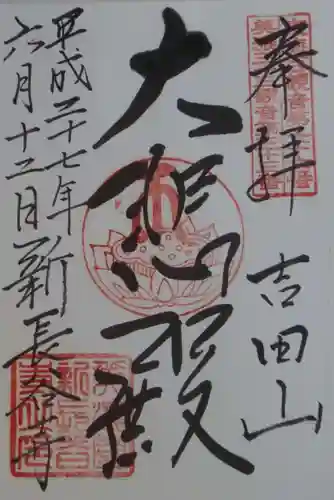 奉拝
吉田山
大悲殿
平成二十七年
六月十二日 新長谷寺